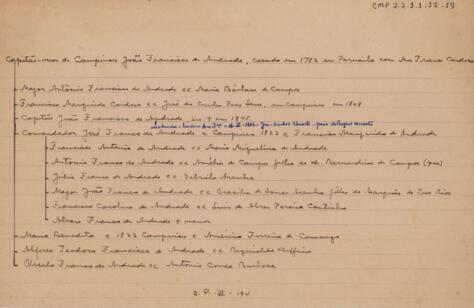 CMP 2.2.1.1.22.13
Capitão-mor de Campinas João Francisco de Andrade, casado em 1783 em Parnaíba com An Franc Cardoso
Major Antonio Francisco de Andrade cc Maria Barbara de Campos
Francisca Margarida Cardoso cc José da Cunha Paes Leme, em Campinas em 1808
Capitão João Francisco de Andrade, em + em 1845
Comendador José Franco de Andrade c Campinas 1823 c Francisca Margarida de Andrade
Francisco Antonio de Andrade cc Maria Miquelina de Andrade
Antonio Franco de Andrade cc Amélia de Campos filha de Bernardino de Campos (pae)
Julio Franco de Andrade cc Gabriela Aranha
Major João Franco de Andrade cc Brasilia de Souza Aranha filha do Marquês de Tres Rios
Francisca Carolina de Andrade cc Luis de Abreu Pereira Coutinho
Alvaro Franco de Andrade + menor
Maria Benedita c 1823 Campinas c Américo Ferreira de Camargo
Alferes Teodoro Francisco de Andrade cc Reginalda
Ursula Franco de Andrade cc Antonio Correa Barbosa